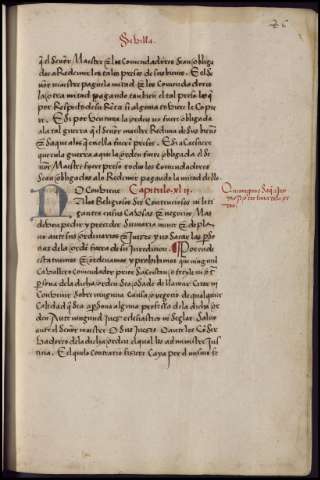 26
Sevilla.
q̃ el Señor Maestre E los Comendadores Sean obliga
dos a Redemir los tales presos de sus bienes. E el Se
ñor maestre pague la mitad E los Comendadores
la otra mitad pagando tambien el tal preso lo q̃
por Respeto de su Rẽta si alguna tovie le Cupie
re. E si por ventura la orden no fuere obligada
a la tal guerra q̃ el Señor maestre Redima de sus bienes
E saque a los que en ella fueren presos. E si acaesciere
que en la guerra a que la orden fuere obligada el Se
ñor Maestre fuere preso todos los Comendadores
sean obligados a le Redemir pagando la mitad dello
No Conbiene Capitulo. xl ij.
a los Religiosos Ser Contenciosos ni liti
gantes en sus Cabsas E negocios. Mas
deven pedir y proceder Sumaria mente E de pla
no ante sus ordinarios E Juezes y no Sacar las per
sonas de la orden fuera de su Juredicion. Por ende
estatuimos E ordenamos y prohibimos que ningund
Cavallero Comendador prior Sacristan o freyle ni otra
persona de la dicha orden Sea osado de llamar Citar ni
Convenir Sobre ninguna Cabsa o negocio de qualquier
Calidad q̃ Sea a persona alguna professa de la dicha or
den Ante ningund Juez eclesiastico ni Seglar. Salvo
ante el Señor maestre O Sus Juezes O ante los Go ver
nadores de la dicha orden el qual les administre Jus
ticia. E el que lo Contrario fiziere Caya por el mismo fe
Que ninguno Saque